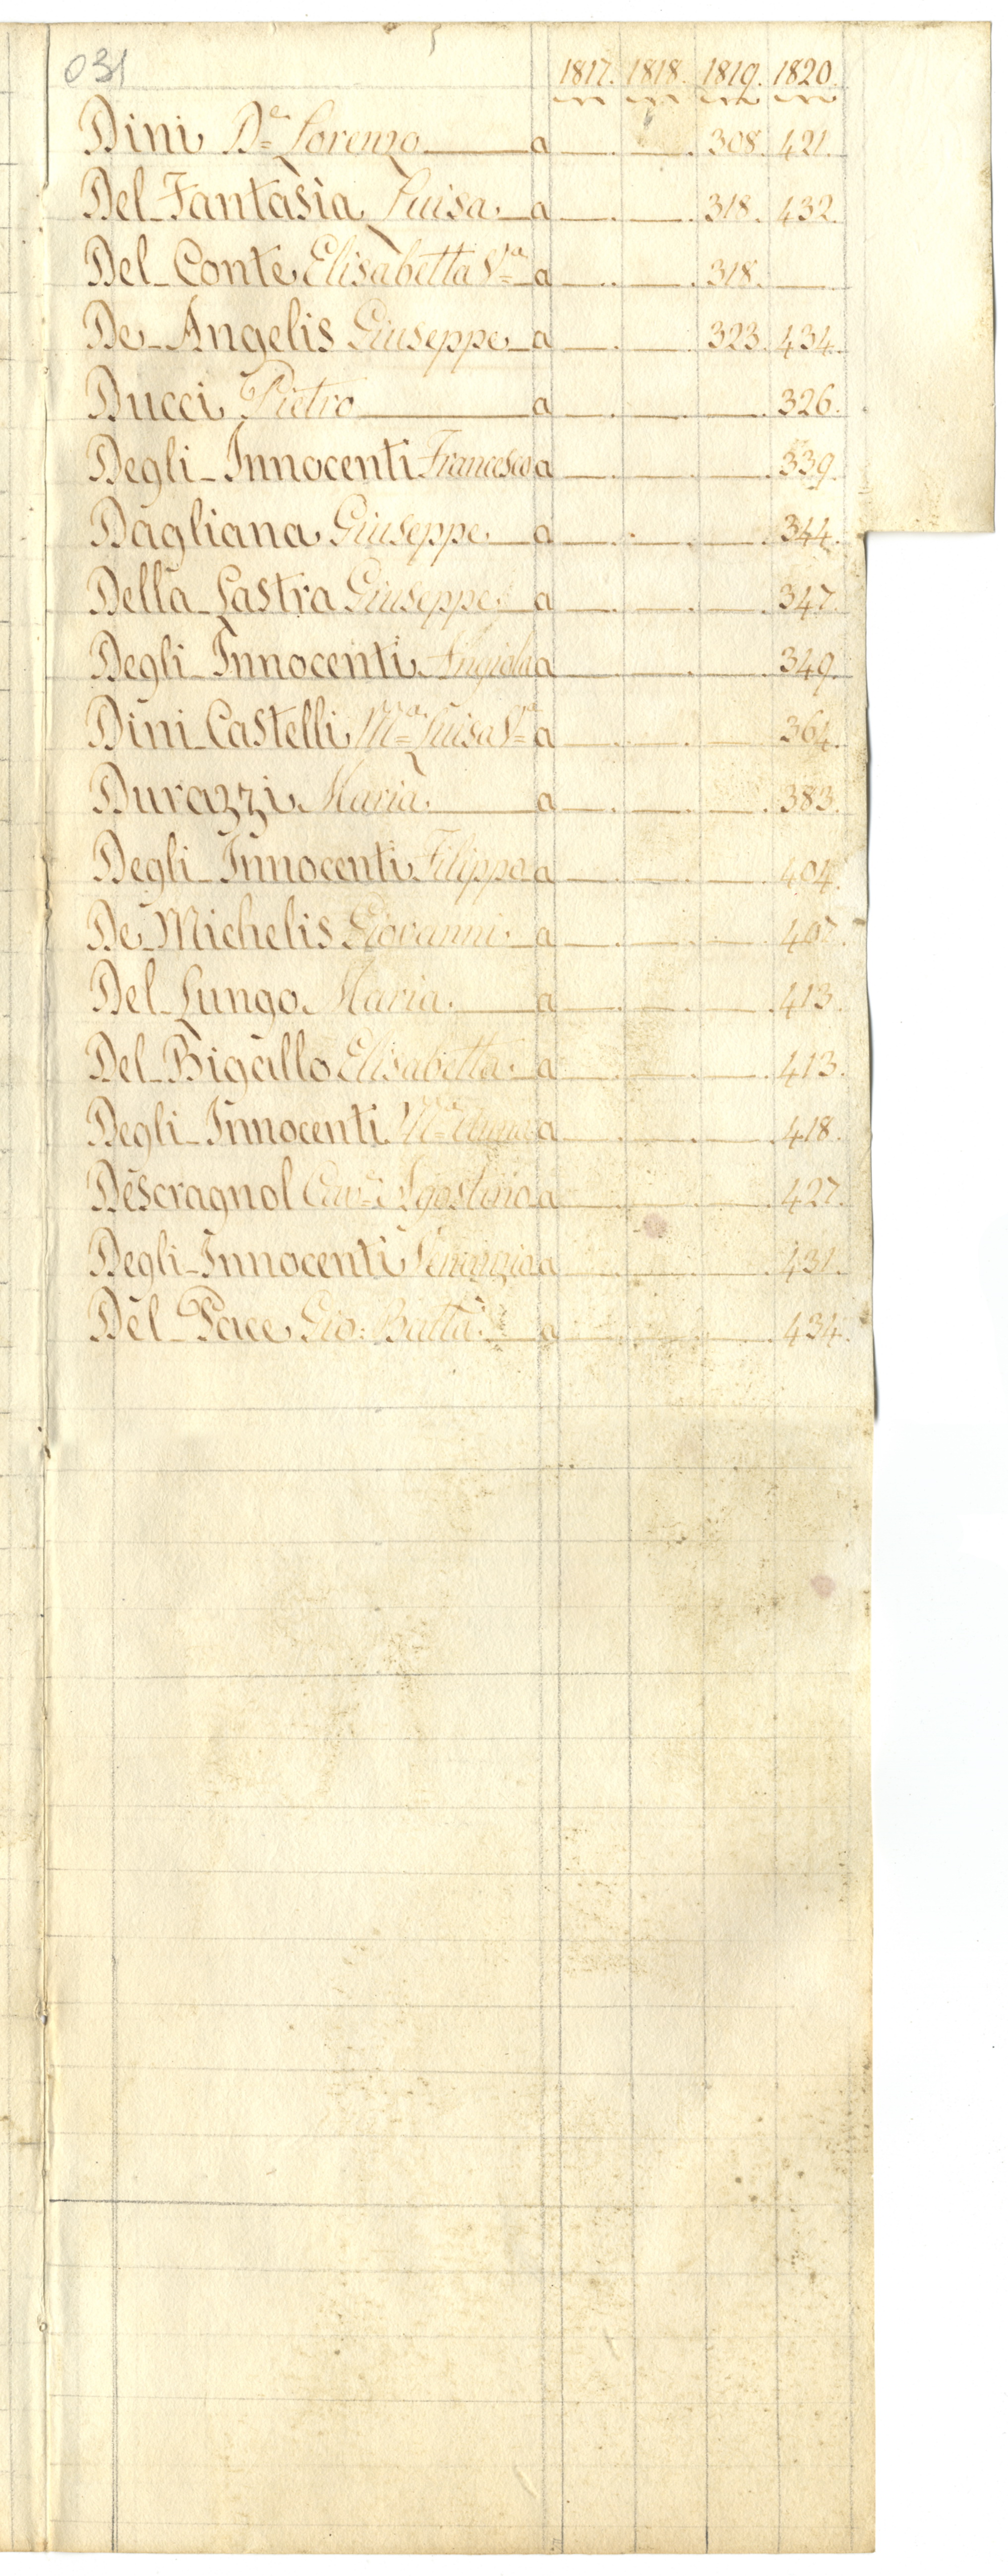 031
1817. 1818. 1819. 1820.
Dini Dr. Lorenzo a 308. 421.
Del Fantasia Luisa a 318. 432.
Del Conte Elisabetta Va. a 318.
De Angelis Giuseppe a 323. 434.
Ducci Pietro a 326.
Degli Innocenti Francesco a 339.
Dagliana Giuseppe a 344.
Della Lastra Giuseppe a 347.
Degli Innocenti Angiola a 349.
Dini Castelli Ma. Luisa Va. a 364.
Durazzi Maria a 383.
Degli Innocenti Filippo a 404.
De Michelis Giovanni a 407.
Del Lungo Maria a 413.
Del Bigallo Elisabetta a 413.
Degli Innocenti Ma. Anna a 418.
Descragnol Cav.e Agostino a 427.
Degli Innocenti a 431.
Del Pace Gio: Batta. a 434.